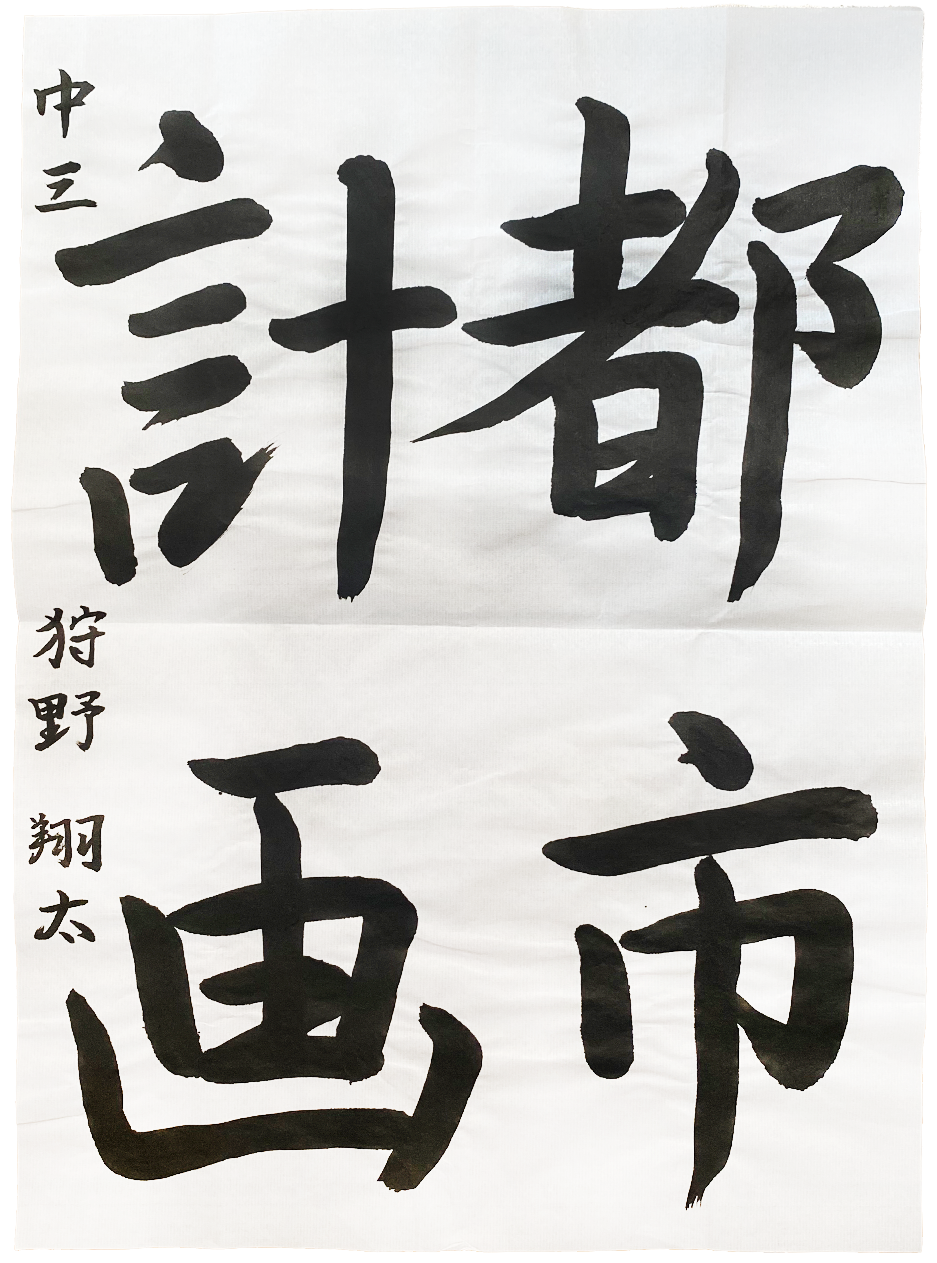 都市
計画
中三 狩野 翔太